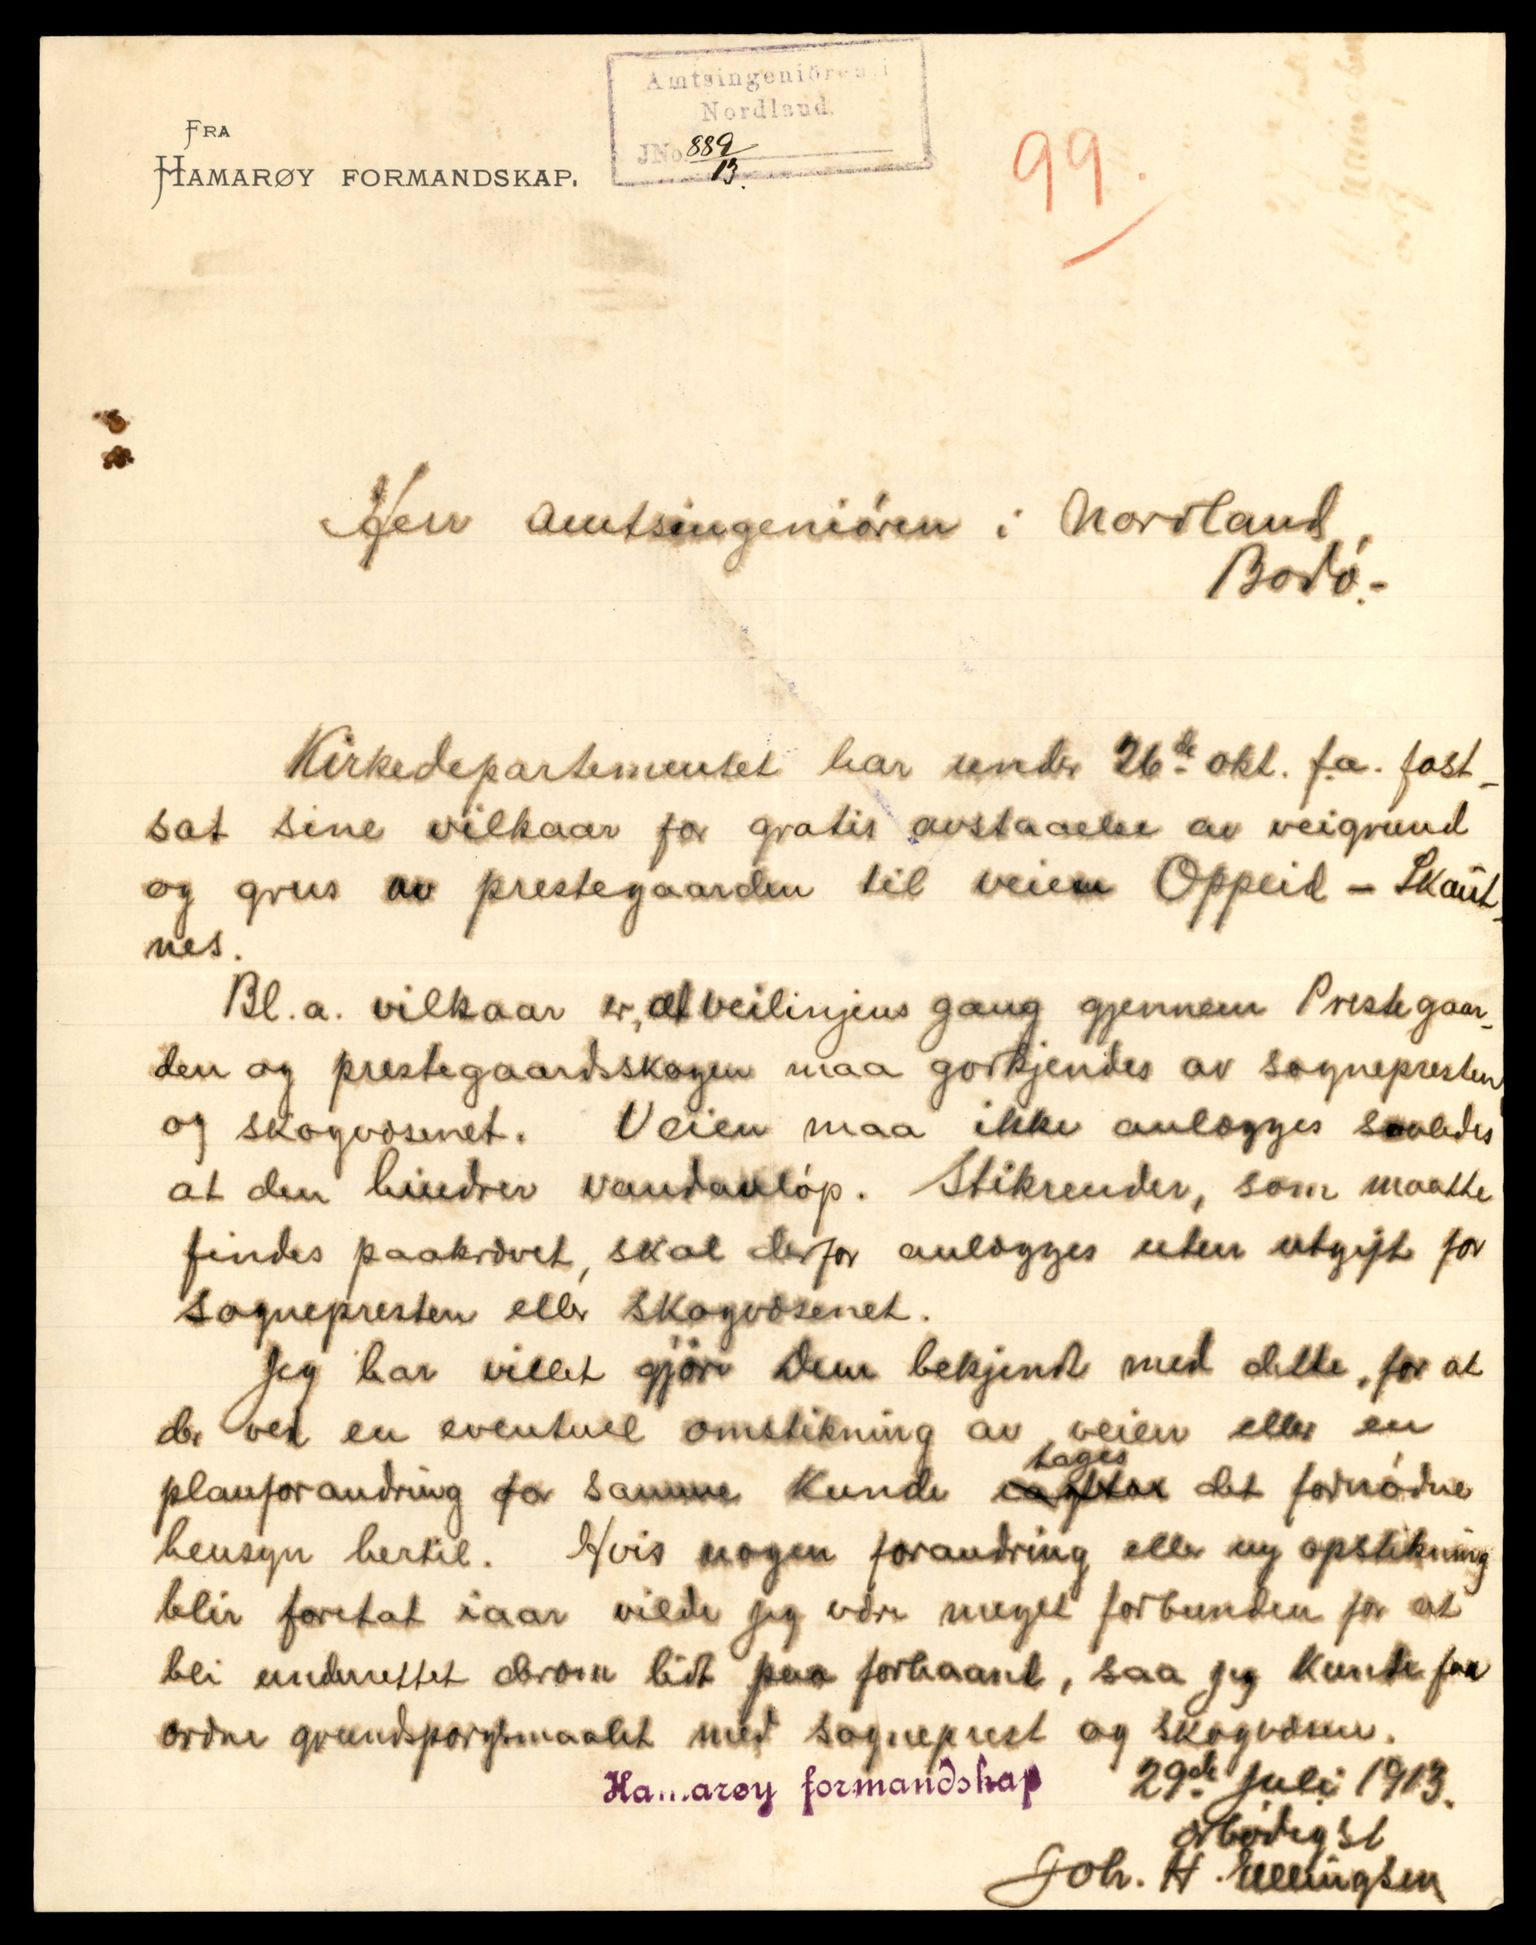 Amtsingeniören i
Nordland.
JNo. 889/13.
FRA
HAMARØY FORMANDSKAP.
99.
Herr Amtsingeniören i Nordland,
Bodö.-
Kirkedepartementet har under 26de okt. f.a. fast-
sat sine vilkaar for gratis avstaaelse av veigrund
og grus av prestegaarden til veien Oppeid - Skaut-
nes.
Bl.a. vilkaar er, at veilinjens gang gjennem Prestegaar-
den og prestegaardsskogen maa godkjendes av sognepresten
og skogvæsenet. Veien maa ikke anlægges saaledes
at den hindrer vandavløp. Stikrender, som maatte
findes paakrævet, skal derfor anlægges uten utgift for
sognepresten eller skogvæsenet.
Jeg har villet gjöre Dem bekjendt med dette, for at
der ved en eventuel omstikning av veien eller en
planforandring for samme kunde tages det fornødne
hensyn hertil. Hvis nogen forandring eller ny opstikning
blir foretat iaar vilde jeg være meget forbunden for at
bli underrettet derom lidt paa forhaand, saa jeg kunde faa
ordne grundspørgsmaalet med sogneprest og skogvæsen.
Hamarøy formandskap 29de juli 1913.
ærbødigst
Joh. H. Ellingsen